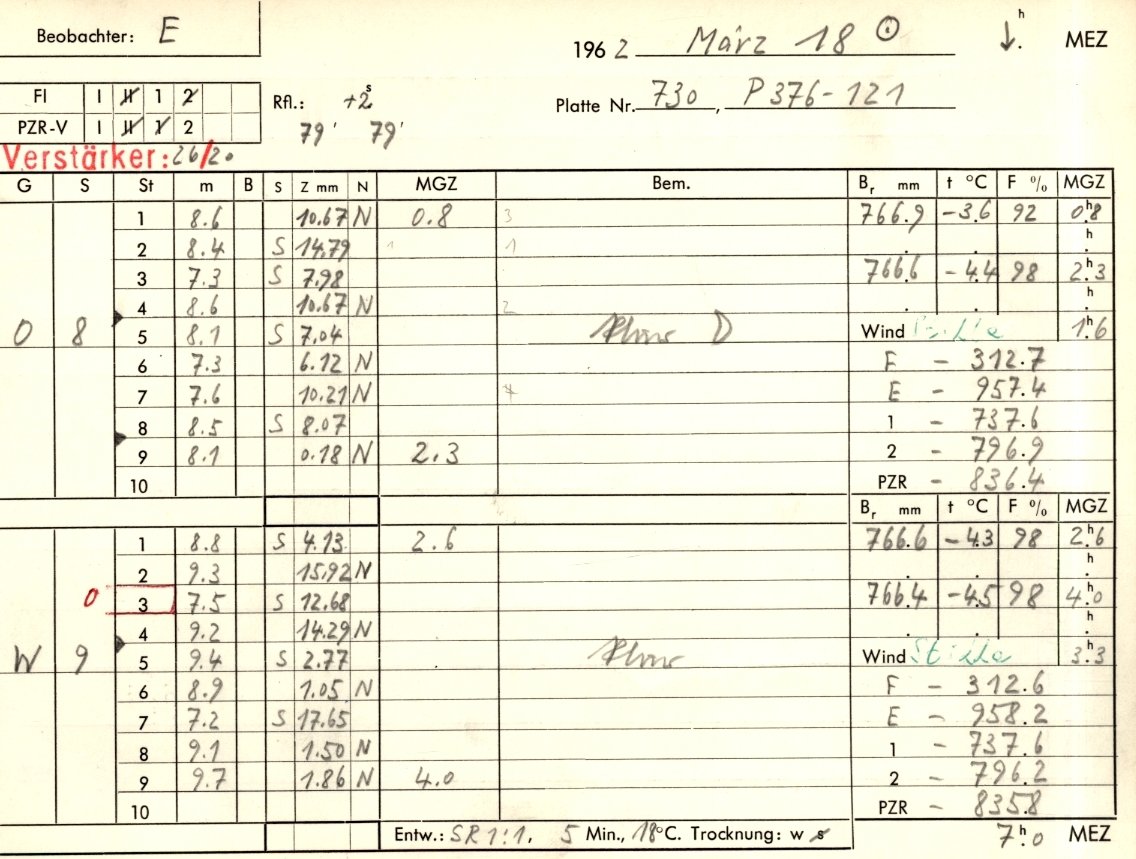 Beobachter: E
1962 März 18 h MEZ
FI I II 1 2
PZR-V I II 1 2
Rfl.: +2s
79' 79'
Platte Nr. 730, P376-121
Verstärker: 26/20
G S St m B S Z mm N MGZ Bem. Br mm t °C F % MGZ
1 8.6 10.67 N 0.8 3 766.9 -3.6 92 0h8
2 8.4 S 14.79 1 1 h
3 7.3 S 7.98 766.6 -4.4 98 2h3
4 8.6 10.67 N 2 h
O 8 5 8.1 S 7.04 D Wind 1h6
6 7.3 6.12 N F - 312.7
7 7.6 10.21 N 4 E - 957.4
8 8.5 S 8.07 1 - 737.6
9 8.1 0.18 N 2.3 2 - 796.9
10 PZR - 836.4
Br mm t °C F % MGZ
1 8.8 S 4.13 2.6 766.6 -4.3 98 2h6
2 9.3 15.92 N h
0 3 7.5 S 12.68 766.4 -4.5 98 4h0
4 9.2 14.29 N h
W 9 5 9.4 S 2.77 Wind Stille 3h3
6 8.9 1.05 N F - 312.6
7 7.2 S 17.65 E - 958.2
8 9.1 1.50 N 1 - 737.6
9 9.7 1.86 N 4.0 2 - 796.2
10 PZR - 835.8
Entw.: SR 1:1, 5 Min., 18°C. Trocknung: w s 7h0 MEZ